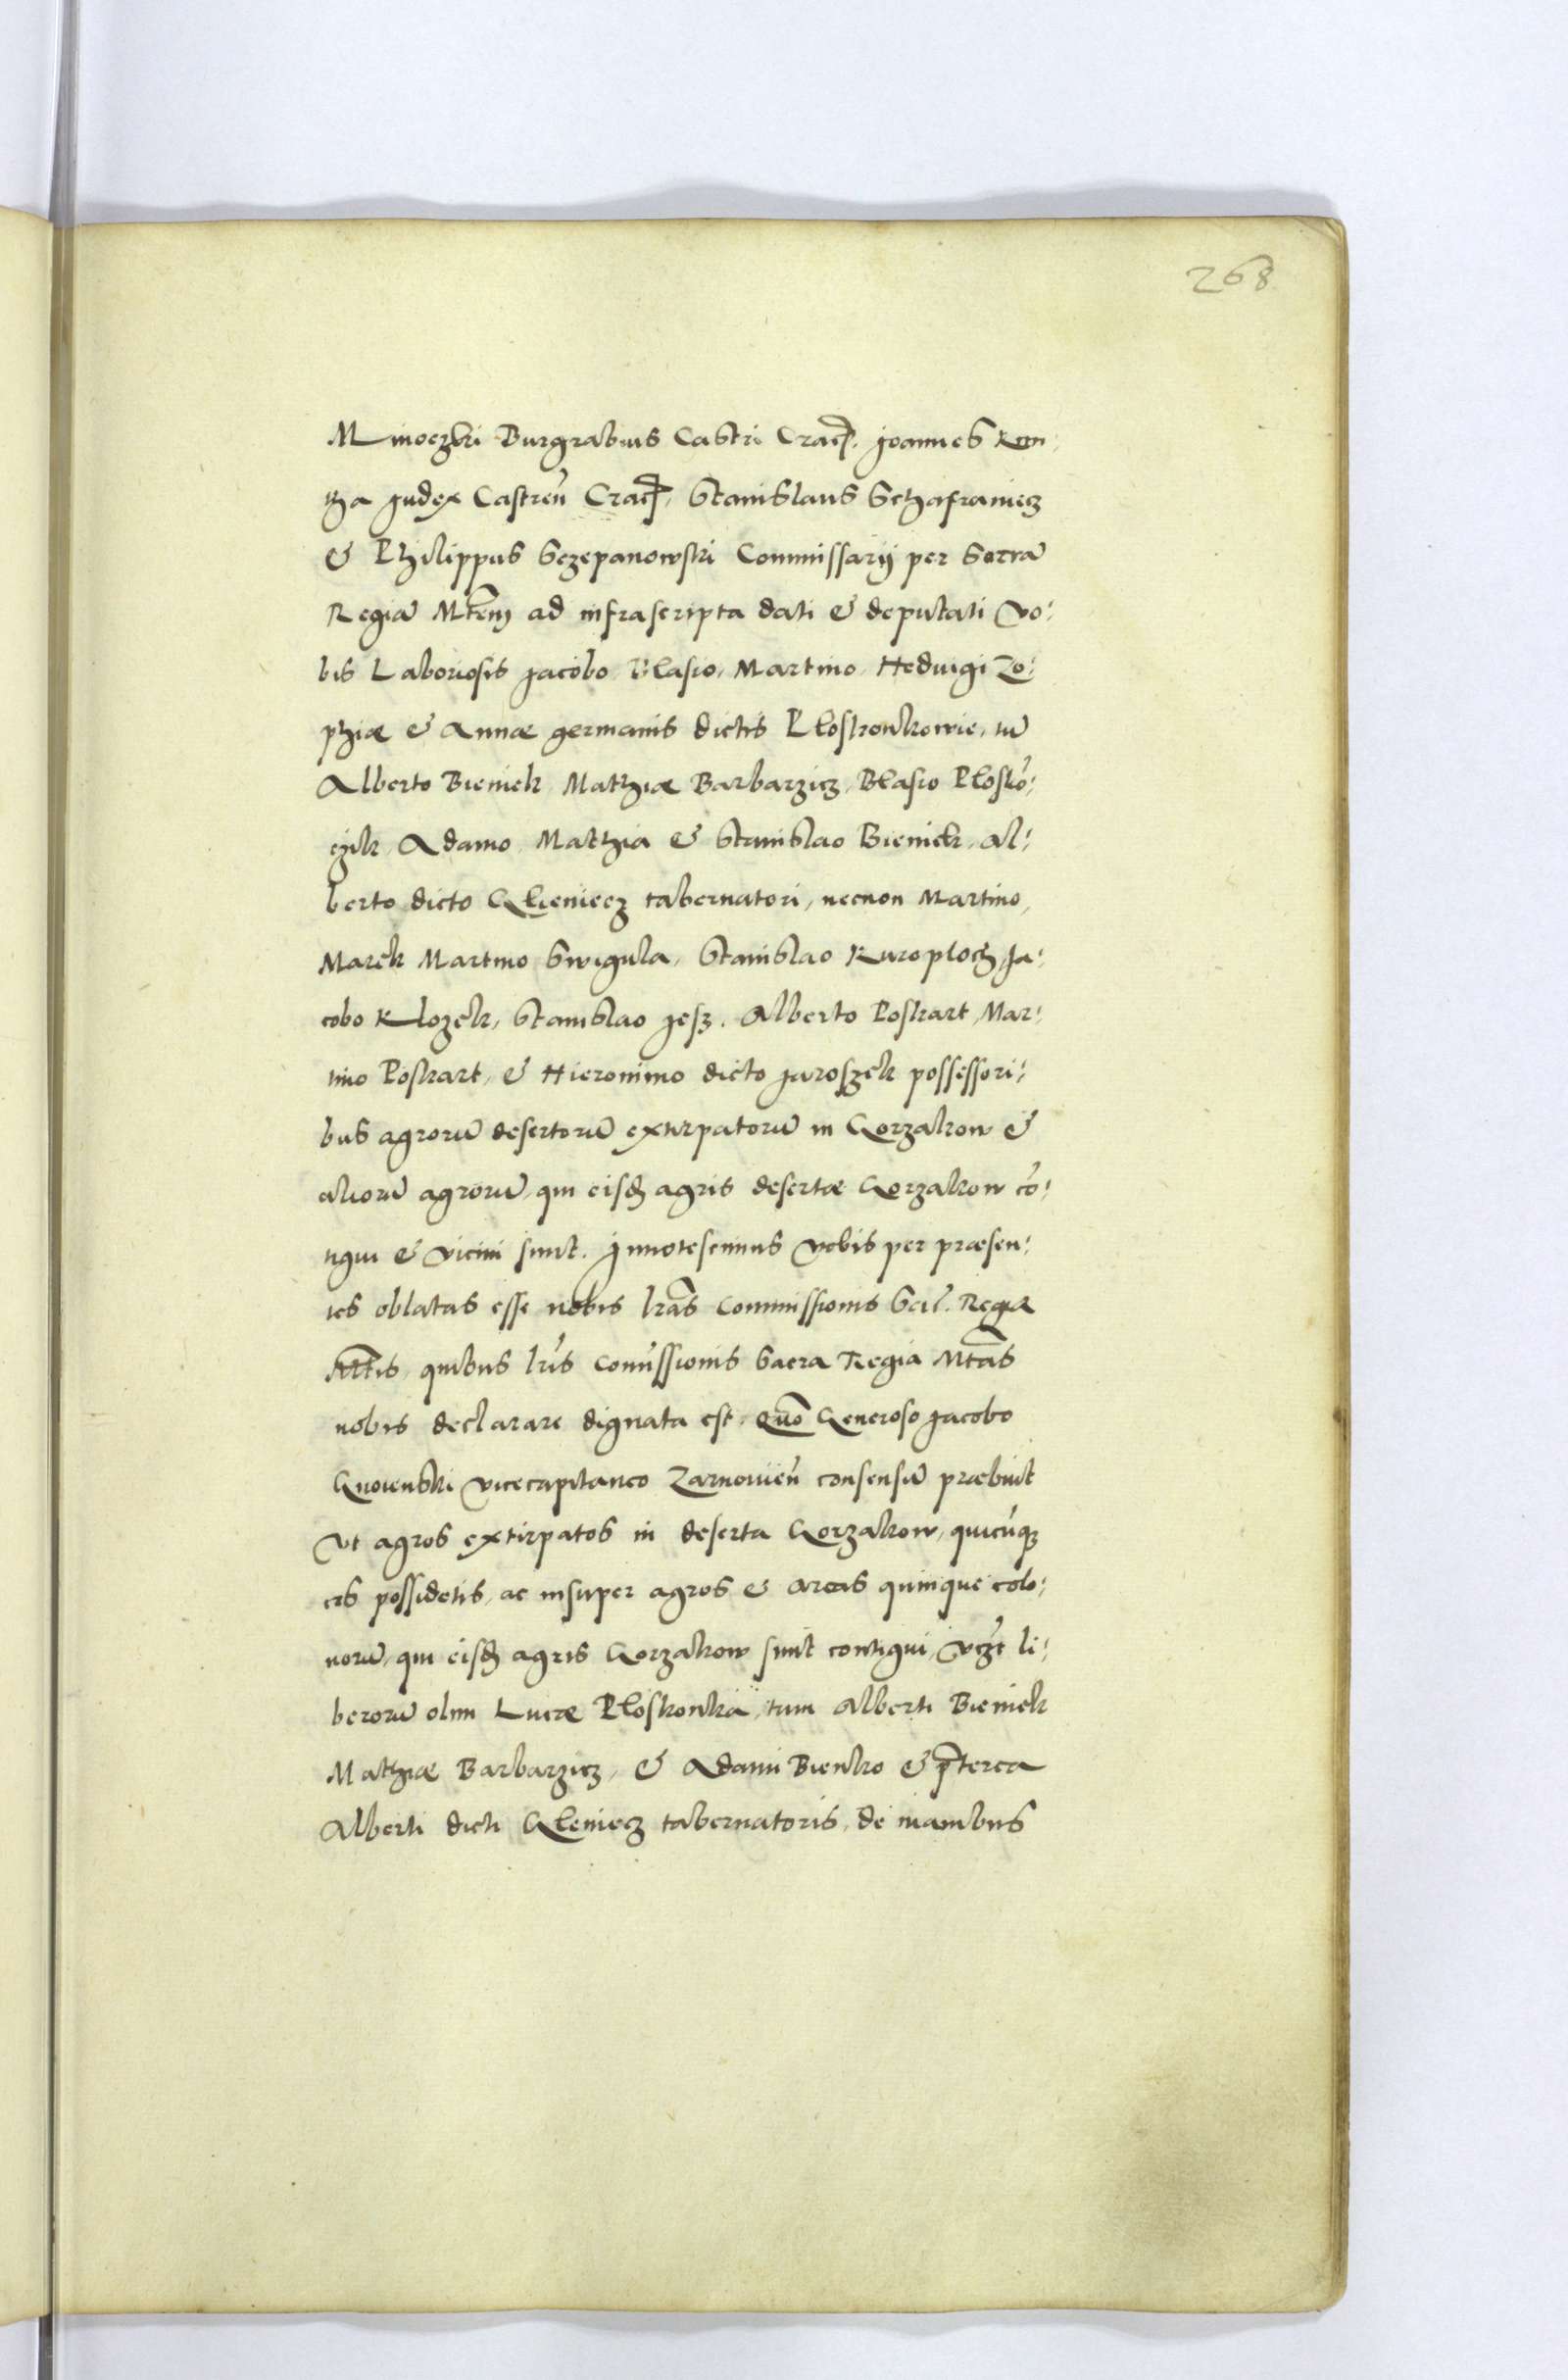 268
Minoczki Burgrabius Castri Crac̃. Joannes Kon
tha Judex Castreñ Crac̃, Stanislaus Schafraniecz
& Philippus Sczepanowski Commissarij per Sacrā
Regiā Mtem̃ ad infrascripta dati & deputati vo:
bis Laboriosis Jacobo Blasio, Martino, Heduigi Zo:
phiæ & Annæ germanis dictis Płoskonkowie, tū
Alberto Bieniek Mathiæ Barbarzicz, Blasio Płoskō:
czik Adamo Mathia & Stanislao Bieniek, Al:
berto dicto Glieniecz tabernatori, necnon Martino,
Marek Martino Swigula, Stanislao Kuroploch, Ja:
cobo Klozek, Stanislao Jesz. Alberto Poskart, Mar:
tino Poskart, & Hieronimo dicto Jaroszek possessori:
bus agrorū desertorū extirpatorū in Gorzakow &
aliorū agrorū, qui eisđ agris desertæ Gorzakow cō:
tigui & vicini sunt. Innotescimus vobis per præsen:
tes oblatas esse nobis lrãs Commissionis Sac̃. Regiæ
Mttis, quibus lrĩs Comissionis Sacra Regia Mtãs
nobis declarare dignata est, quõ Generoso Jacobo
Gnoienski vicecapitaneo Zarnowieñ consensū præbuit
vt agros extirpatos in deserta Gorzakow, quicūq;
eos possidetis, ac insuper agros & areas quinque colo:
norū, qui eisđ agris Gorzakow sunt contigui, vcz̃t li:
berorū olim Lucæ Płoskonka, tum Alberti Bieniek
Mathiæ Barbarzicz, & Adami Bienko & p̃terea
Alberti dicti Gleniecz tabernatoris, de manibus